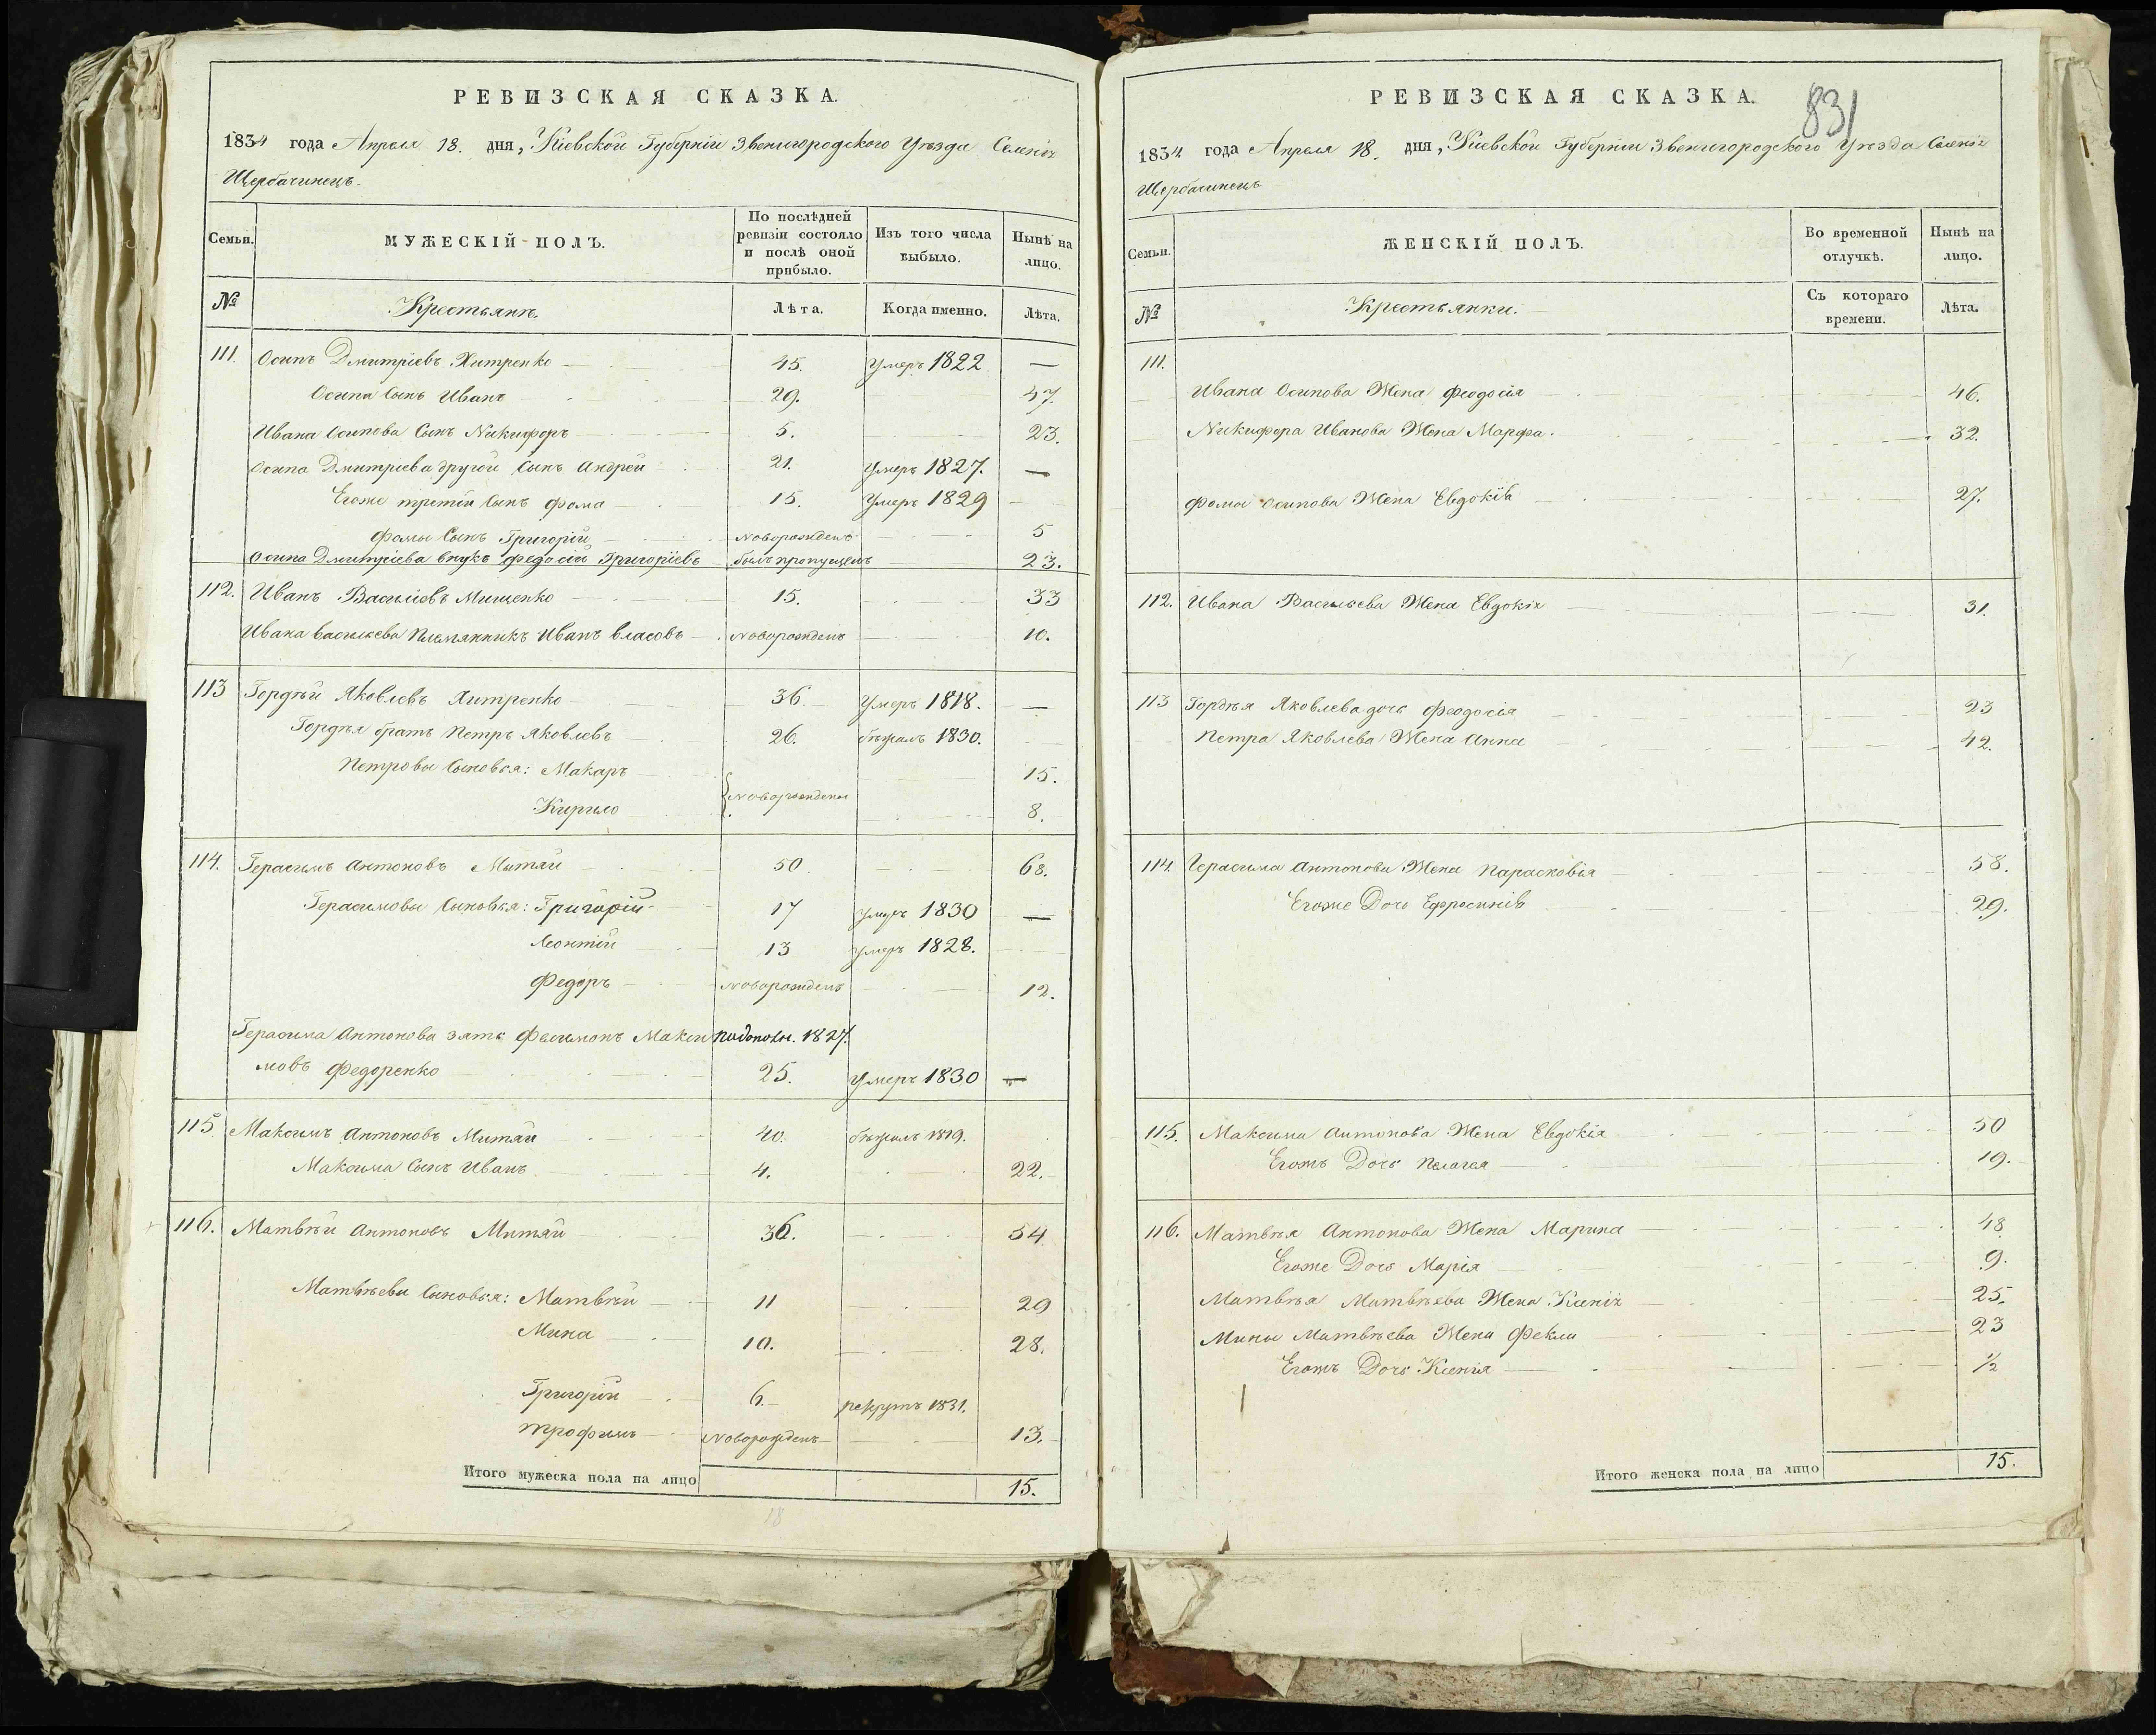 РЕВИЗСКАЯ СКАЗКА.
1834 года Апреля 18. дня, Кіевской Губерніи Звенигородского Уезда Селенія
Щербачинецъ.
Семьи. МУЖЕСКІЙ ПОЛЪ. По послѣдней ревизіи состояло и послѣ оной прибыло. Изъ того числа выбыло. Нынѣ на лицо.
№ Крестьянъ. Лѣта. Когда именно. Лѣта.
111. Осипъ Дмитріевъ Хитренко 45. Умеръ 1822 —
Осипа Сынъ Иванъ 29. 47.
Ивана Осипова Сынъ Никифоръ 5. 23.
Осипа Дмитріева другой Сынъ Андрей 21. Умеръ 1827. —
Егоже третій Сынъ Фома 15. Умеръ 1829
Фомы Сынъ Григорій новорожденъ 5
Осипа Дмитріева внукъ Федосій Григоріевъ былъ пропущенъ 23.
112. Иванъ Василіевъ Мищенко 15. 33
Ивана Васильева Племянникъ Иванъ Власовъ новорожденъ 10.
113 Гордѣй Яковлевъ Хитренко 36. Умеръ 1818. —
Гордѣя братъ Петръ Яковлевъ 26. бѣжалъ 1830.
Петровы Сыновья: Макаръ 15.
новорождены
Кирило 8.
114. Герасимъ Антоновъ Митяй 50. 68.
Герасимовы Сыновья: Григорій 17 умеръ 1830 —
Леонтій 13 умеръ 1828.
Федоръ новорожденъ 12.
Герасима Антонова зять Филимонъ Макси 1827.
мовъ Федоренко 25. Умеръ 1830 —
115 Максимъ Антоновъ Митяй 40. бѣжалъ 1819.
Максима Сынъ Иванъ 4. 22.
116. Матвѣй Антоновъ Митяй 36. 54
Матвѣевы Сыновья: Матвѣй 11 29
Мина 10. 28.
Григорій 6. рекрутъ 1831.
Трофимъ Новорожденъ 13.
Итого мужеска пола на лицо 15.
18
831
РЕВИЗСКАЯ СКАЗКА.
1834 года Апреля 18. дня, Кіевской Губерніи Звенигородского Уезда Селенія
Щербачинецъ
Семьи. ЖЕНСКІЙ ПОЛЪ. Во временной отлучкѣ. Нынѣ на лицо.
№ Крестьянки. Съ котораго времени. Лѣта.
111.
Ивана Осипова Жена Феодосія 46.
Никифора Иванова Жена Марфа. 32.
Фомы Осипова Жена Евдокія 27.
112. Ивана Васильева Жена Евдокія 31.
113 Гордѣя Яковлева дочь Феодосія 23
Петра Яковлева Жена Анна 42.
114. Герасима Антонова Жена Парасковія 58.
Егоже Дочь Ефросинія 29.
115. Максима Антонова Жена Евдокія 50
Егожъ Дочь Пелагея 19.
116. Матвѣя Антонова Жена Марина 48.
Егоже Дочь Марія 9.
Матвѣя Матвѣева Жена Ксенія 25.
Мины Матвѣева Жена Фекла 23
Егожъ Дочь Ксенія ½
Итого женска пола на лицо 15.